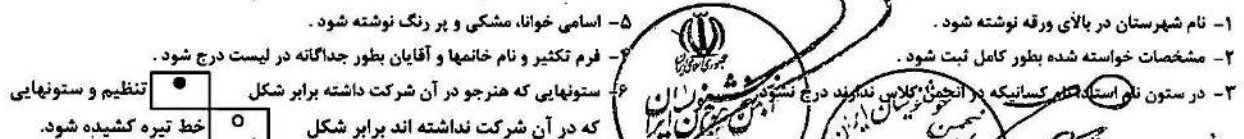 ۱- نام شهرستان در بالای ورقه نوشته شود .
۲- مشخصات خواسته شده بطور کامل ثبت شود .
۳- در ستون نام استاد نام کسانیکه در انجمن کلاس ندارند درج نشود
۵- اسامی خوانا، مشکی و پر رنگ نوشته شود .
۴- فرم تکثیر و نام خانمها و آقایان بطور جداگانه در لیست درج شود .
۶- ستونهایی که هنرجو در آن شرکت داشته برابر شکل تنظیم و ستونهایی
که در آن شرکت نداشته اند برابر شکل خط تیره کشیده شود.
جمهوری اسلامی ایران
انجمن خوشنویسان ایران
انجمن خوشنویسان ایران